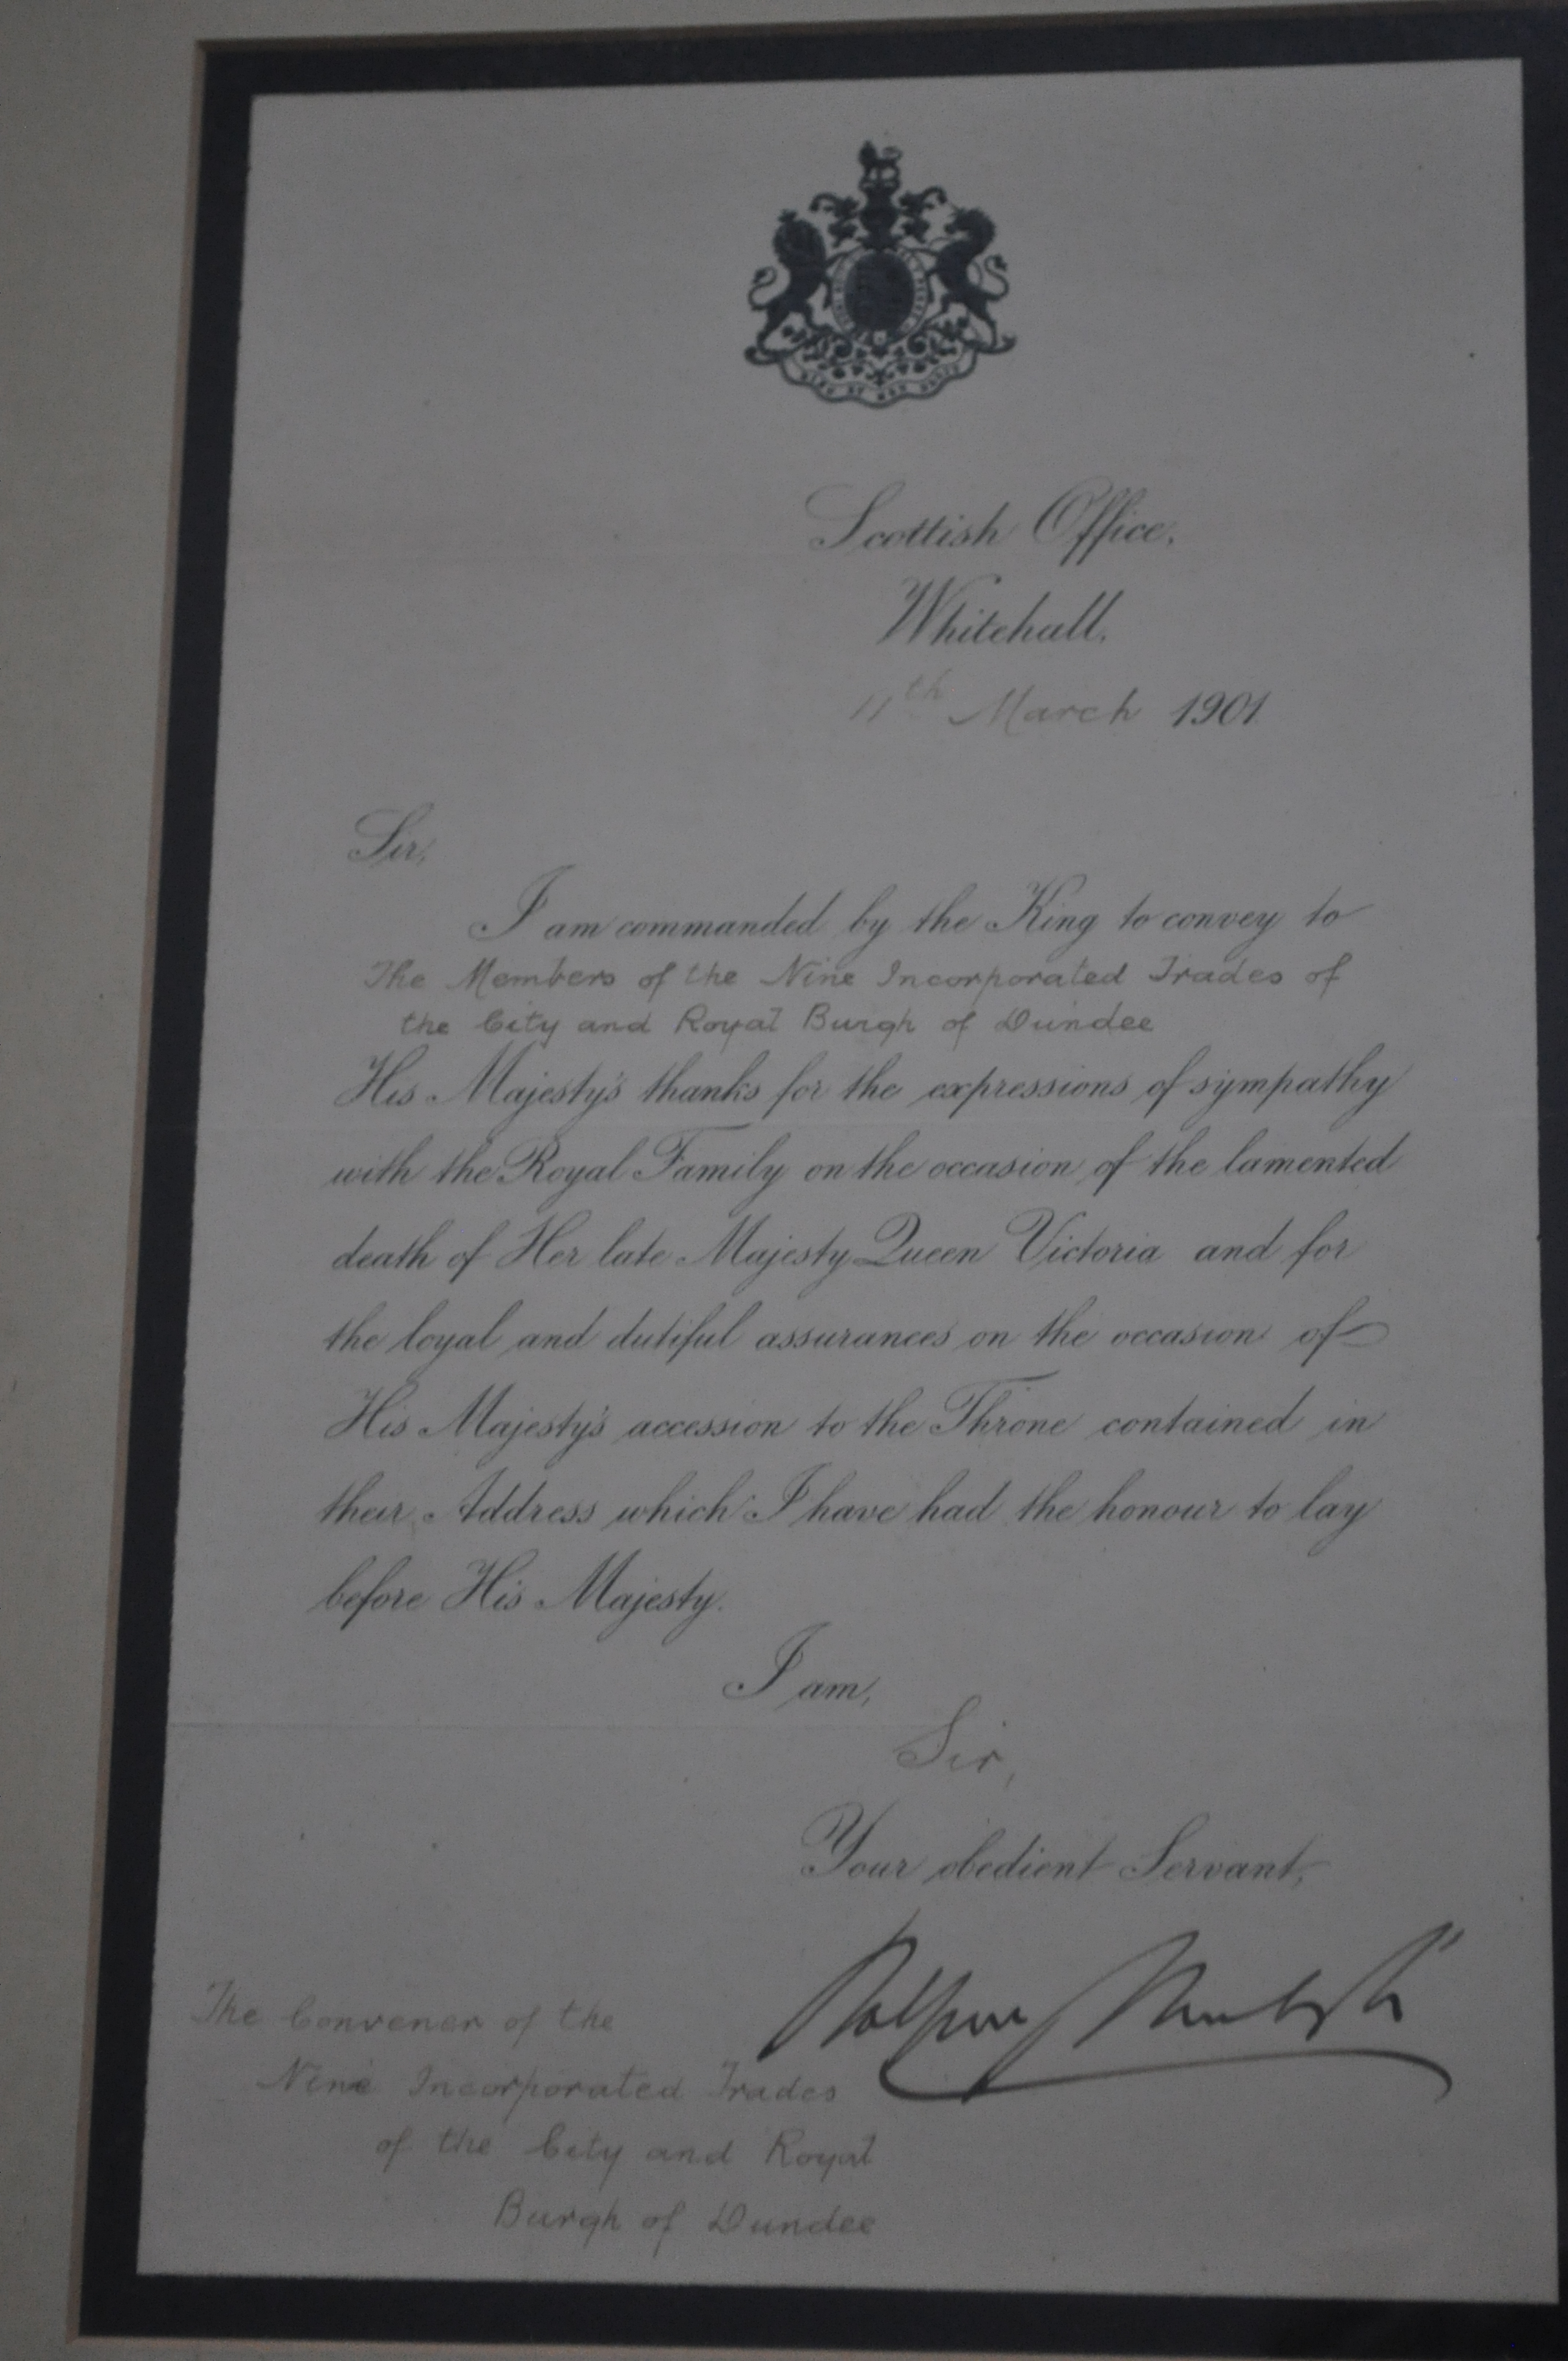 Scottish Office,
Whitehall.
11th March 1901
Sir,
I am commanded by the King to convey to
The Members of the Nine Incorporated Trades of
the City and Royal Burgh of Dundee
His Majesty's thanks for the expressions of sympathy
with the Royal Family on the occasion of the lamented
death of Her late Majesty Queen Victoria and for
the loyal and dutiful assurances on the occasion of
His Majesty's accession to the Throne contained in
their Address which I have had the honour to lay
before His Majesty.
I am,
Sir,
Your obedient Servant,
Balfour
The Convener of the
Nine Incorporated Trades
of the City and Royal
Burgh of Dundee